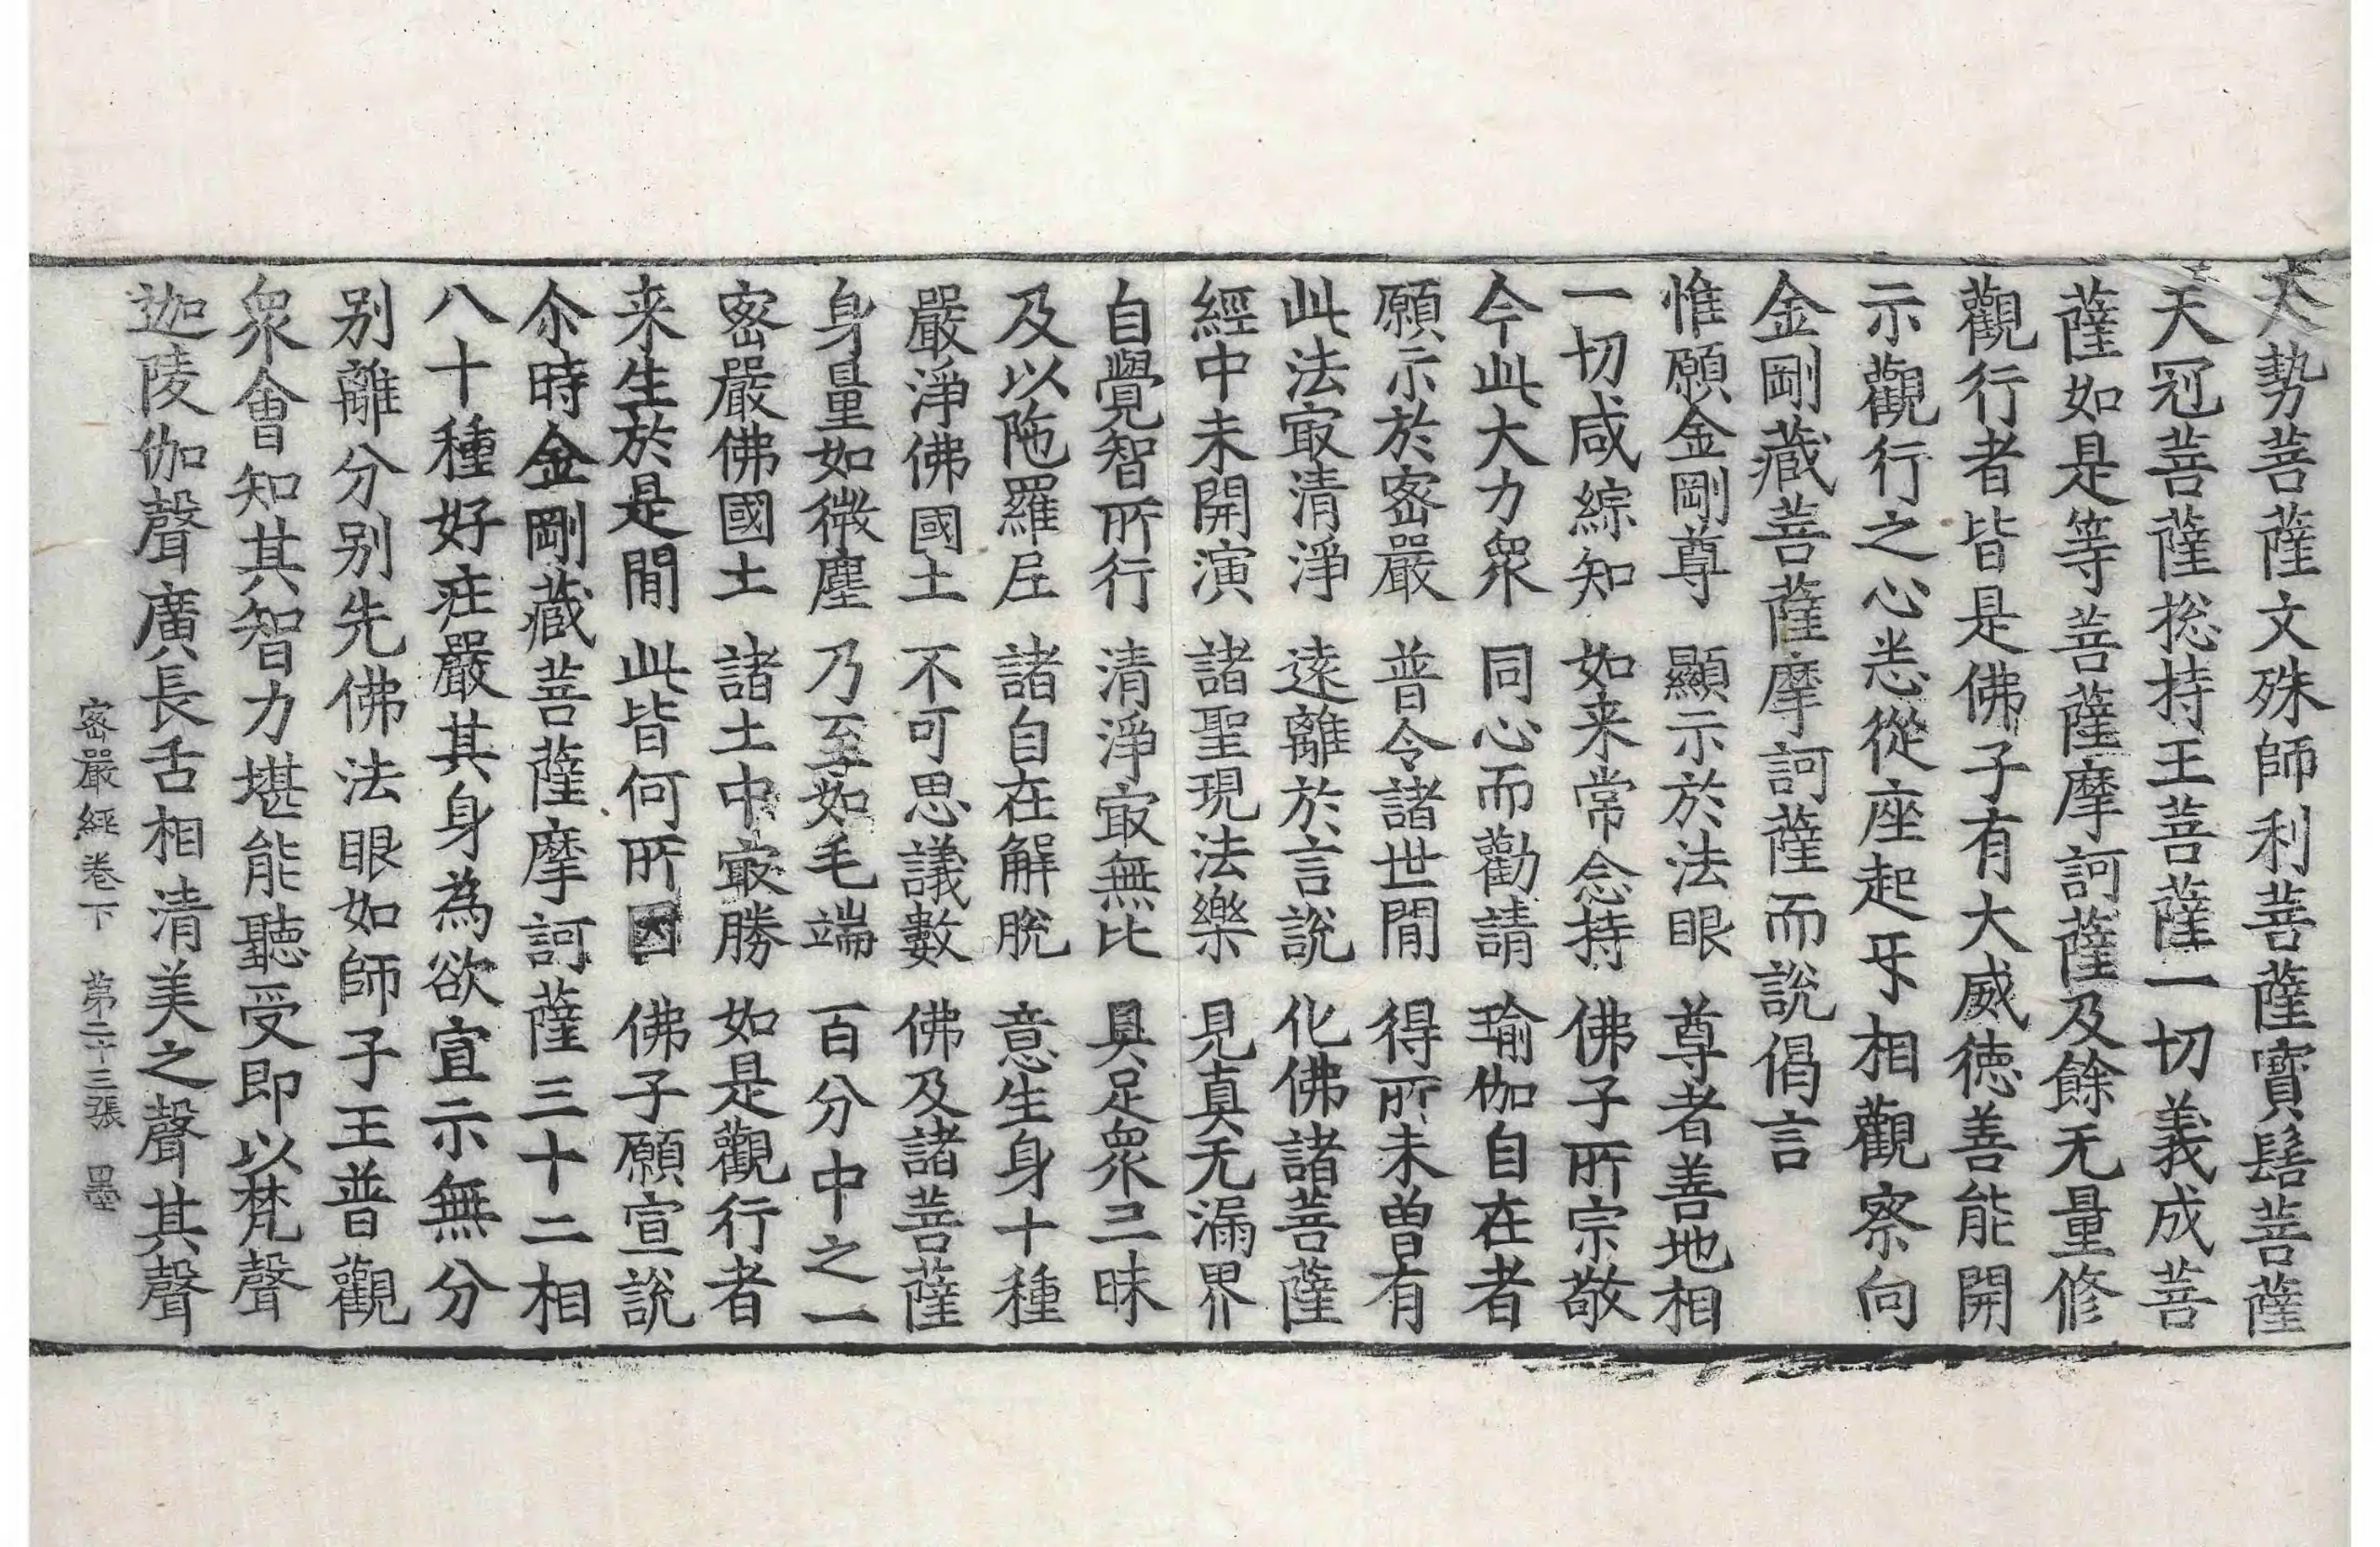 大勢菩薩文殊師利菩薩寶髻菩薩
天冠菩薩捴持王菩薩一切義成菩
薩如是等菩薩摩訶薩及餘无量修
觀行者皆是佛子有大威德善能開
示觀行之心悉從座起㸦相觀察向
金剛藏菩薩摩訶薩而說偈言
惟願金剛尊 顯示於法眼 尊者善地相
一切咸綜知 如来常念持 佛子所宗敬
今此大力衆 同心而勸請 瑜伽自在者
願示於密嚴 普令諸世間 得所未曽有
此法㝡清淨 遠離於言說 化佛諸菩薩
經中未開演 諸聖現法樂 見真无漏界
自覺智所行 清淨㝡無比 具足衆三昧
及以陁羅尼 諸自在解脫 意生身十種
嚴淨佛國土 不可思議數 佛及諸菩薩
身量如微塵 乃至如毛端 百分中之一
密嚴佛國土 諸土中㝡勝 如是觀行者
来生於是間 此皆何所因 佛子願宣說
尒時金剛藏菩薩摩訶薩三十二相
八十種好莊嚴其身為欲宣示無分
别離分别先佛法眼如師子王普觀
衆會知其智力堪能聽受即以梵聲
迦陵伽聲廣長舌相清美之聲其聲
密嚴經卷下 第二十三張 墨